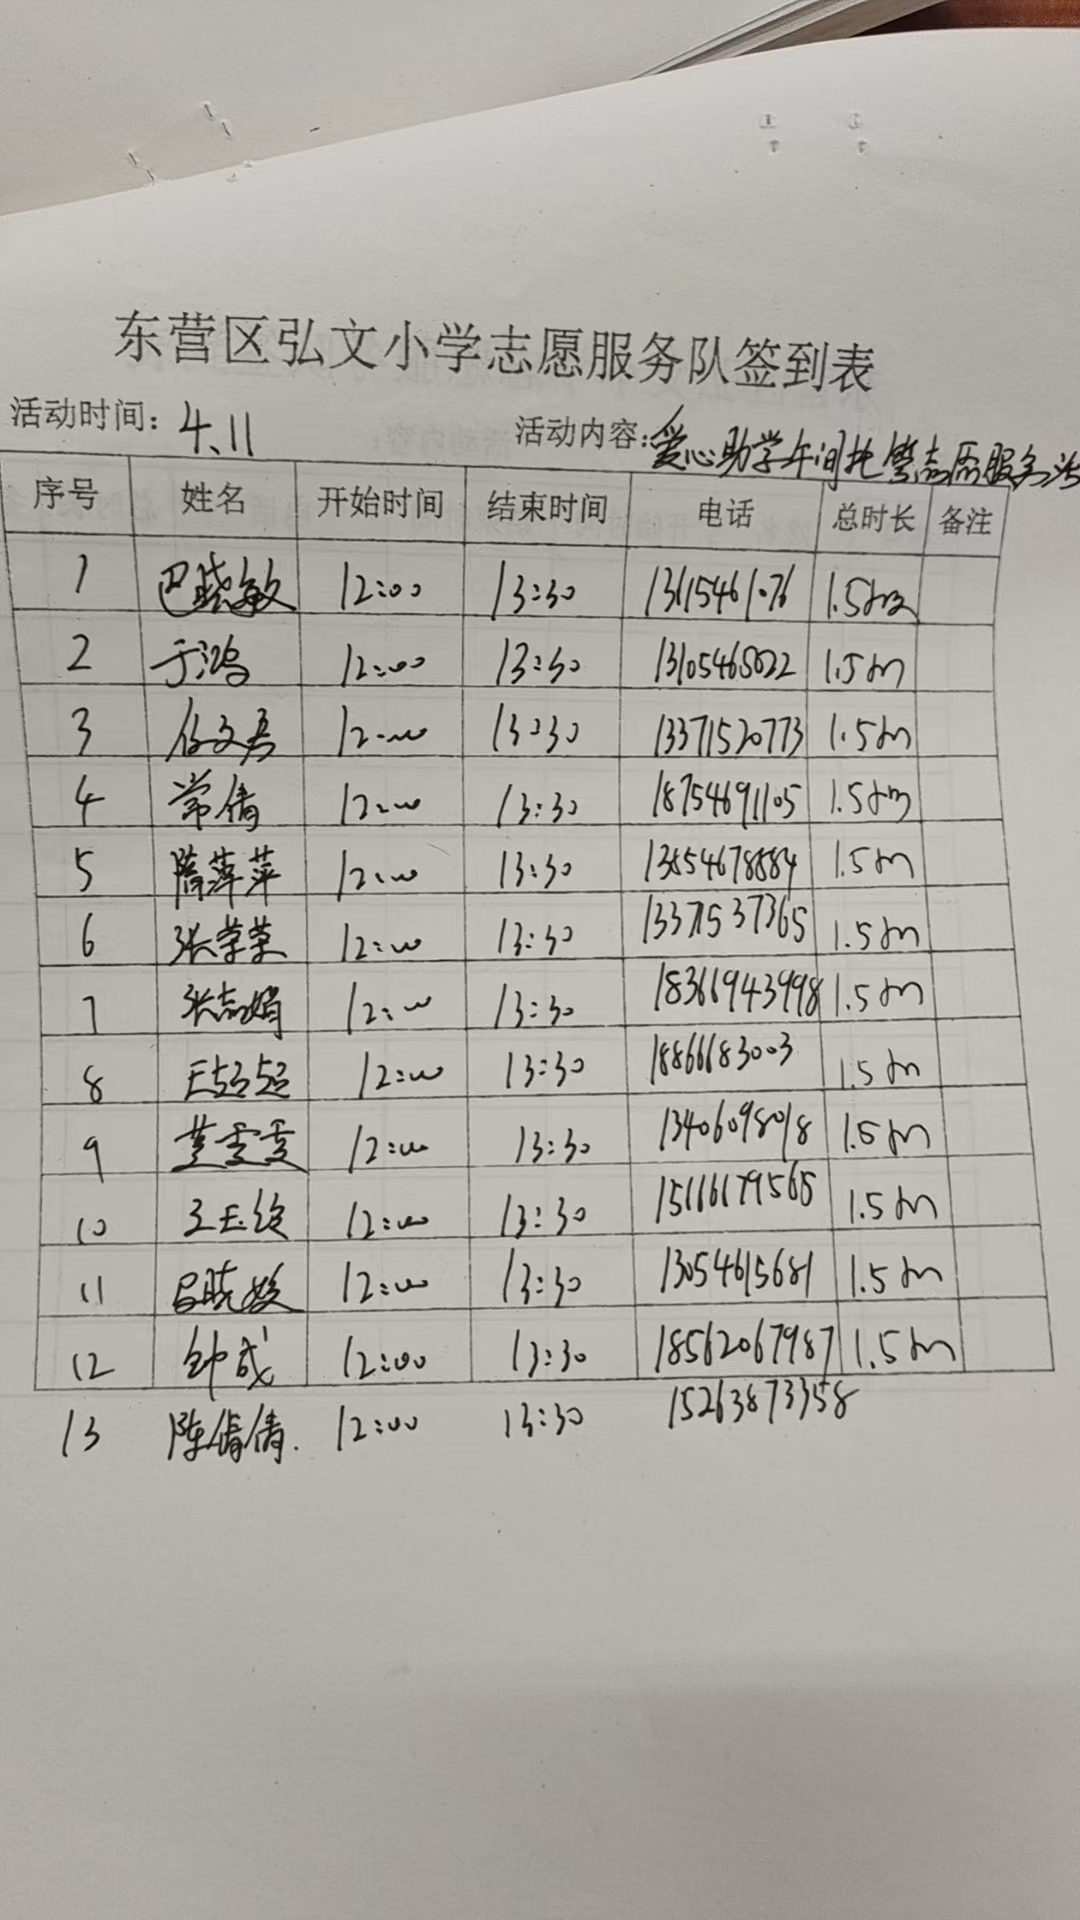 东营区弘文小学志愿服务队签到表
活动时间：4.11 活动内容：爱心助学午间托管志愿服务活
序号 姓名 开始时间 结束时间 电话 总时长 备注
1 巴晓敏 12:00 13:30 13615461076 1.5小时
2 于鸿 12:00 13:30 13105465022 1.5小时
3 任文君 12:00 13:30 13371520773 1.5小时
4 常倩 12:00 13:30 18754691105 1.5小时
5 隋萍萍 12:00 13:30 13854678884 1.5小时
6 张荣荣 12:00 13:30 13371537365 1.5小时
7 张志娟 12:00 13:30 18366943998 1.5小时
8 王超超 12:00 13:30 18866683003 1.5小时
9 董雯雯 12:00 13:30 13406098018 1.5小时
10 王玉玲 12:00 13:30 15116179565 1.5小时
11 吕晓媛 12:00 13:30 13054615681 1.5小时
12 钟成 12:00 13:30 18562067987 1.5小时
13 陈倩倩. 12:00 13:30 15263873358